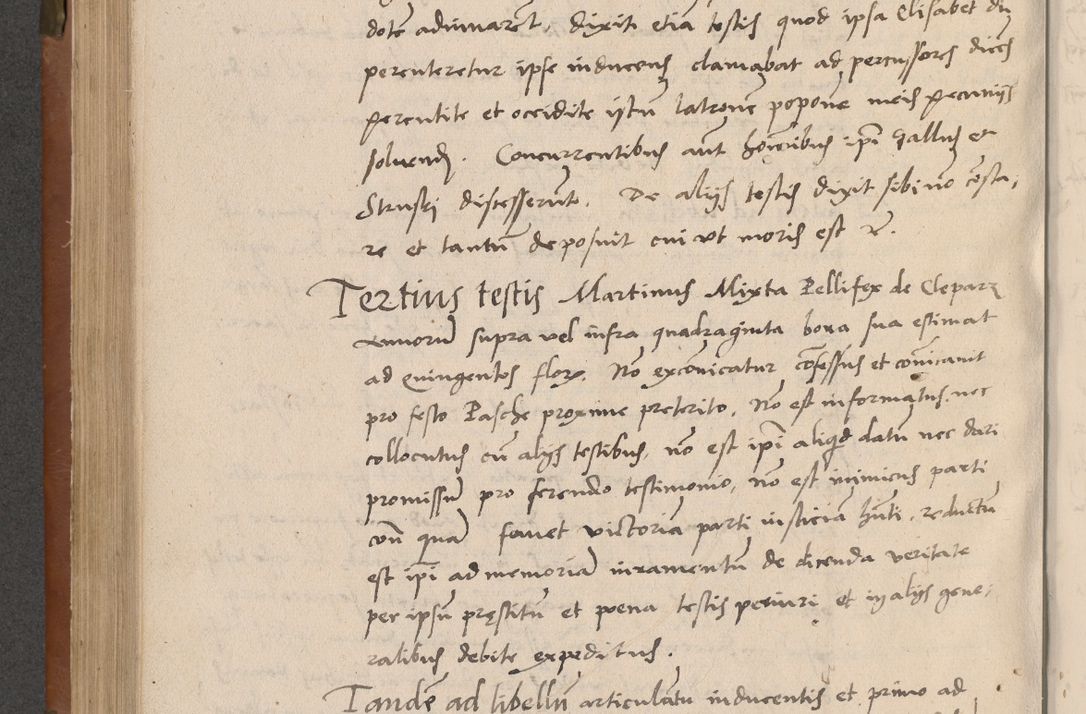 dotē adiuuarēt. Dixit etiā testis quod ipsa Elisabet dū
percuteretur ipse inducens clamabat ad percussores dicēs
percutite et occidite istū latronē popone meis pecuniis
soluend. Concurrentibus aūt hoīeribus ipī Gallus et
Struski discesserunt. De aliis testis dixit sibi nō cōsta,
re et tantū deposuit cui ut moris est &.
Tertius testis Martinus Mixta Pellifex de Clepar
annorū supra vel infra quadraginta bona sua estimat
ad quingentos flor. Nō excōnicatur cōfessus et cōnicauit
pro festo Pasche proxime preterito. Nō est informatus, nec
collocutus cū aliis testibus, nō est ipī aliqd datū nec dari
promissū pro ferendo testimonio, nō est inimicus parti
cōn quā fauet victoriā parti iusticiā hūti, reductū
est ipī ad memoriā iuramentū de dicenda veritate
per ipsū pręstitū et poena testis periuri et in aliis gene,
ralibus debite expeditus.
Tandē ad libellū articulatū inducentis et primo ad